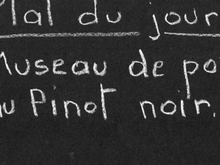 Plat du jour
Museau de po
au Pinot noir.